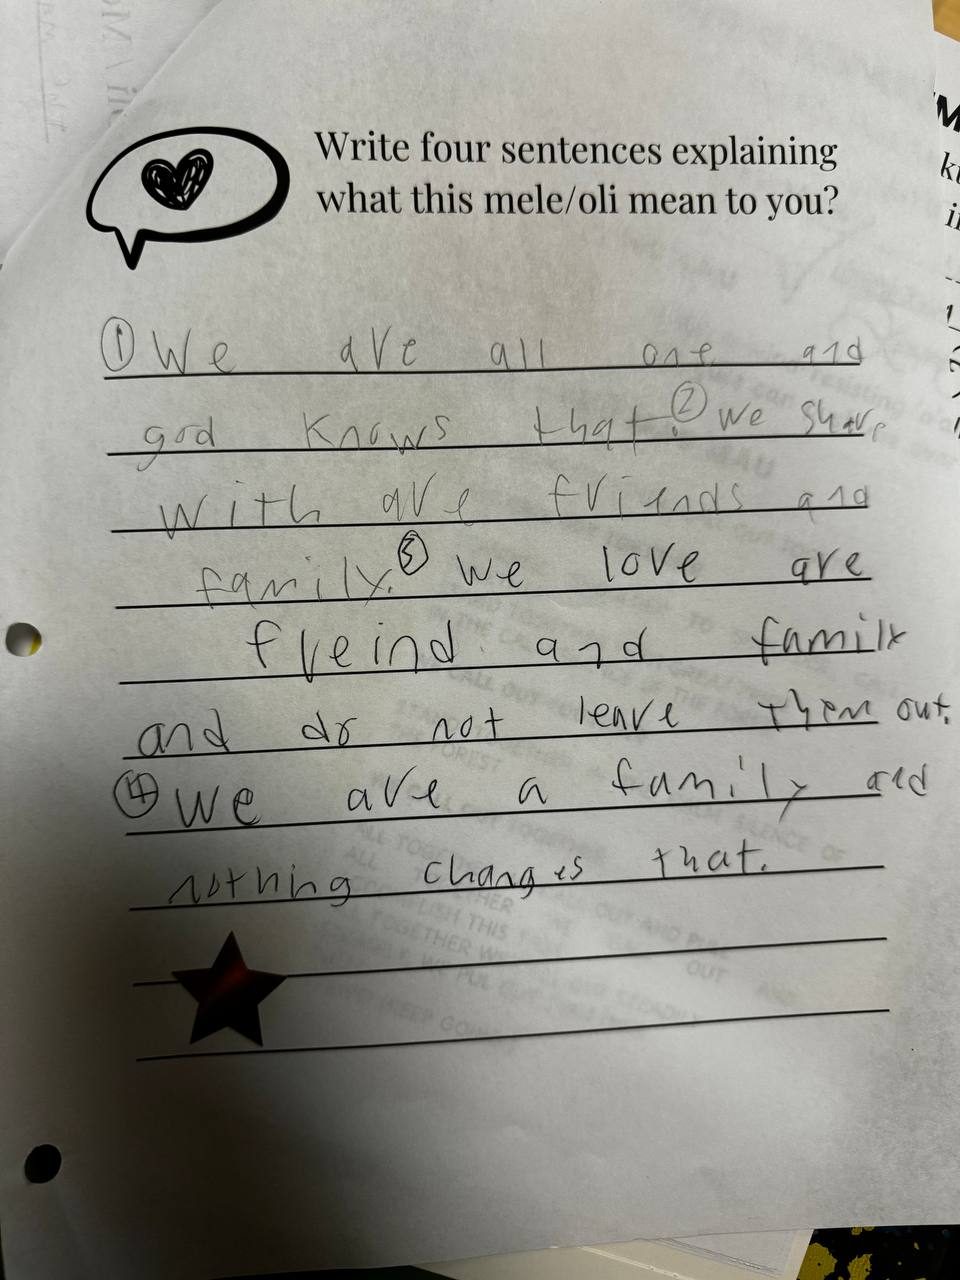 Write four sentences explaining
what this mele/oli mean to you?
① We are all one and
god knows that. ② we share
with are friends and
family. ③ we love are
freind and family
and do not leave them out.
④ we are a family and
nothing changes that.